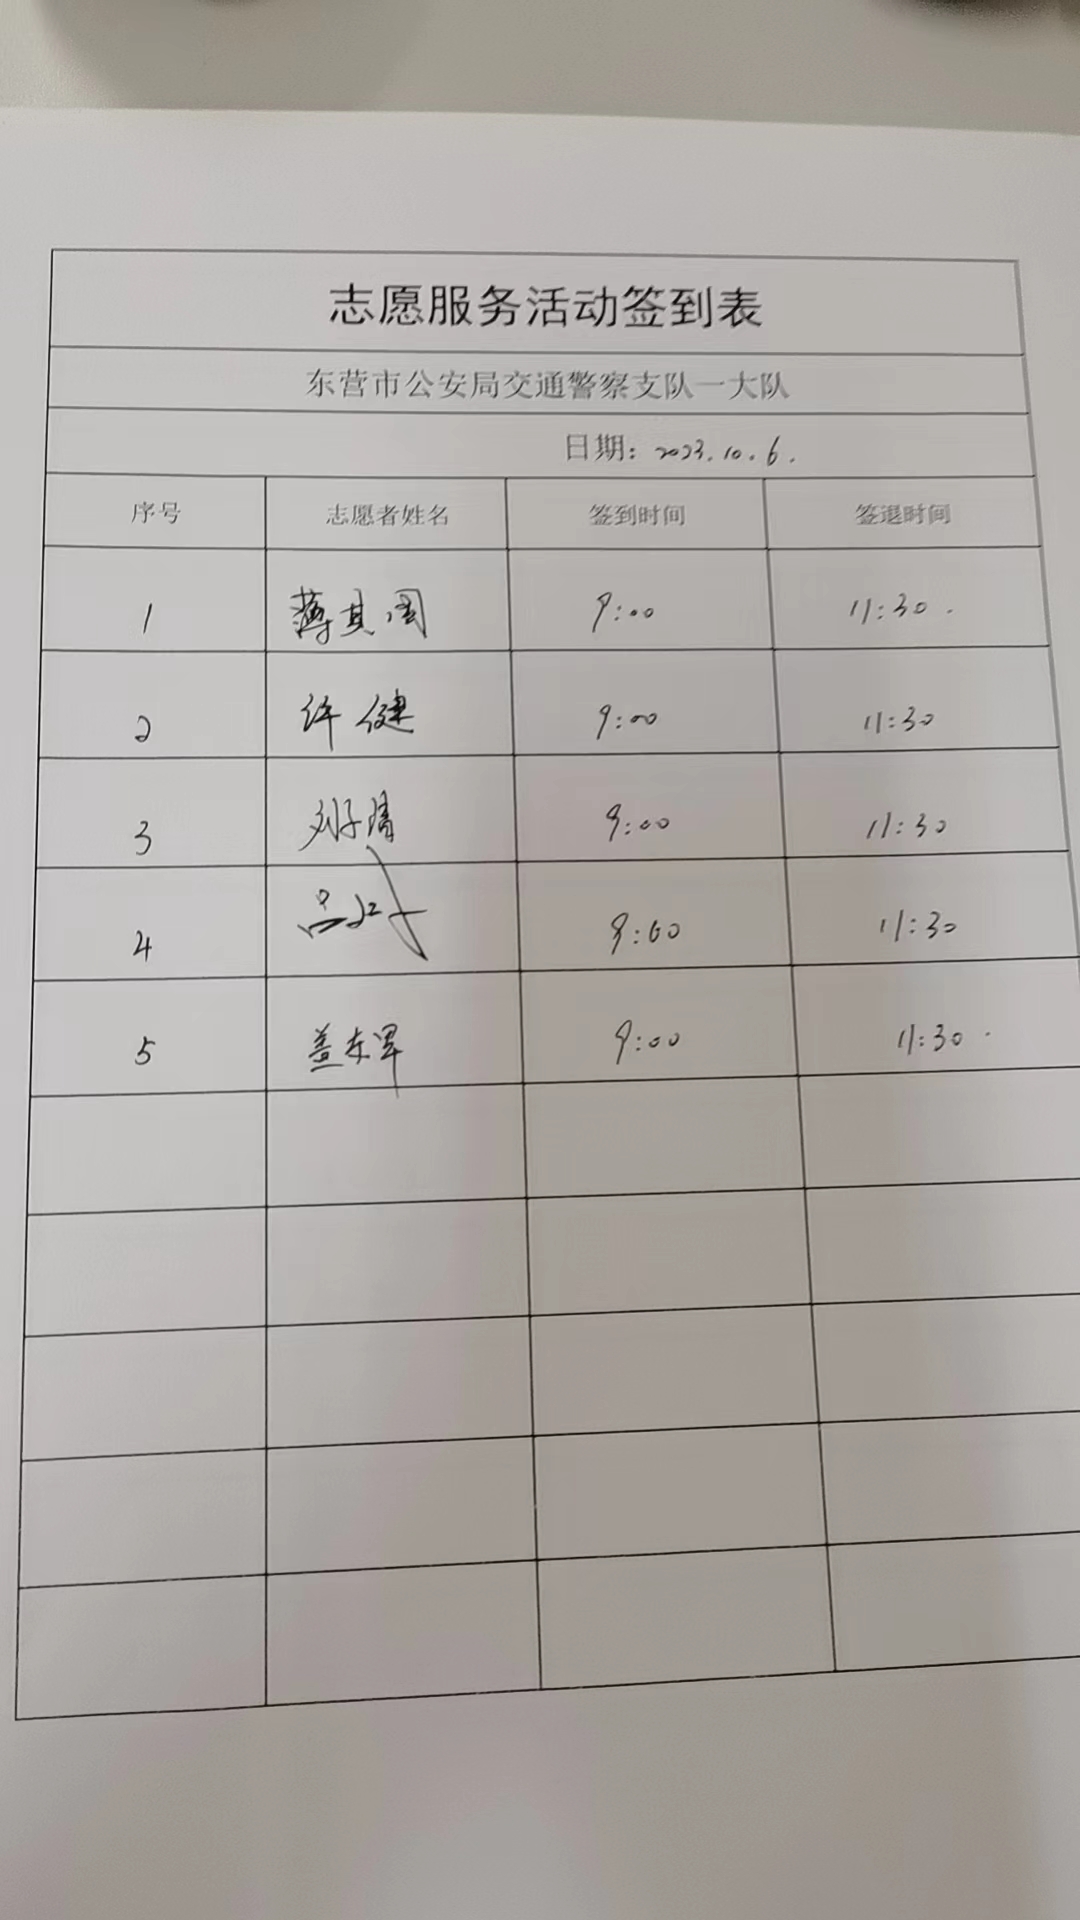 志愿服务活动签到表
东营市公安局交通警察支队一大队
日期：2023.10.6.
序号 志愿者姓名 签到时间 签退时间
1 薄其国 9:00 11:30.
2 许健 9:00 11:30
3 刘子清 9:00 11:30
4 吕 9:00 11:30
5 盖东军 9:00 11:30.